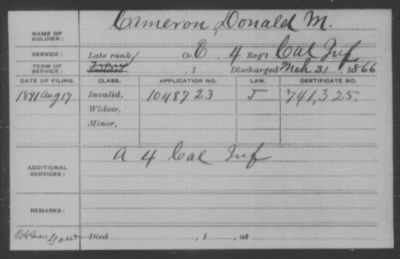 NAME OF SOLDIER: Cameron, Donald M.
SERVICE: Late rank, Co. E, 4 Reg't Cal Inf
TERM OF SERVICE: Enlisted , 1 Discharged Mch 31, 1866
DATE OF FILING. CLASS. APPLICATION NO. LAW. CERTIFICATE NO.
1891 Aug 17 Invalid, 1048723 J 741,325.
Widow,
Minor,
ADDITIONAL SERVICES: A 4 Cal Inf
REMARKS:
Died , 1 , at